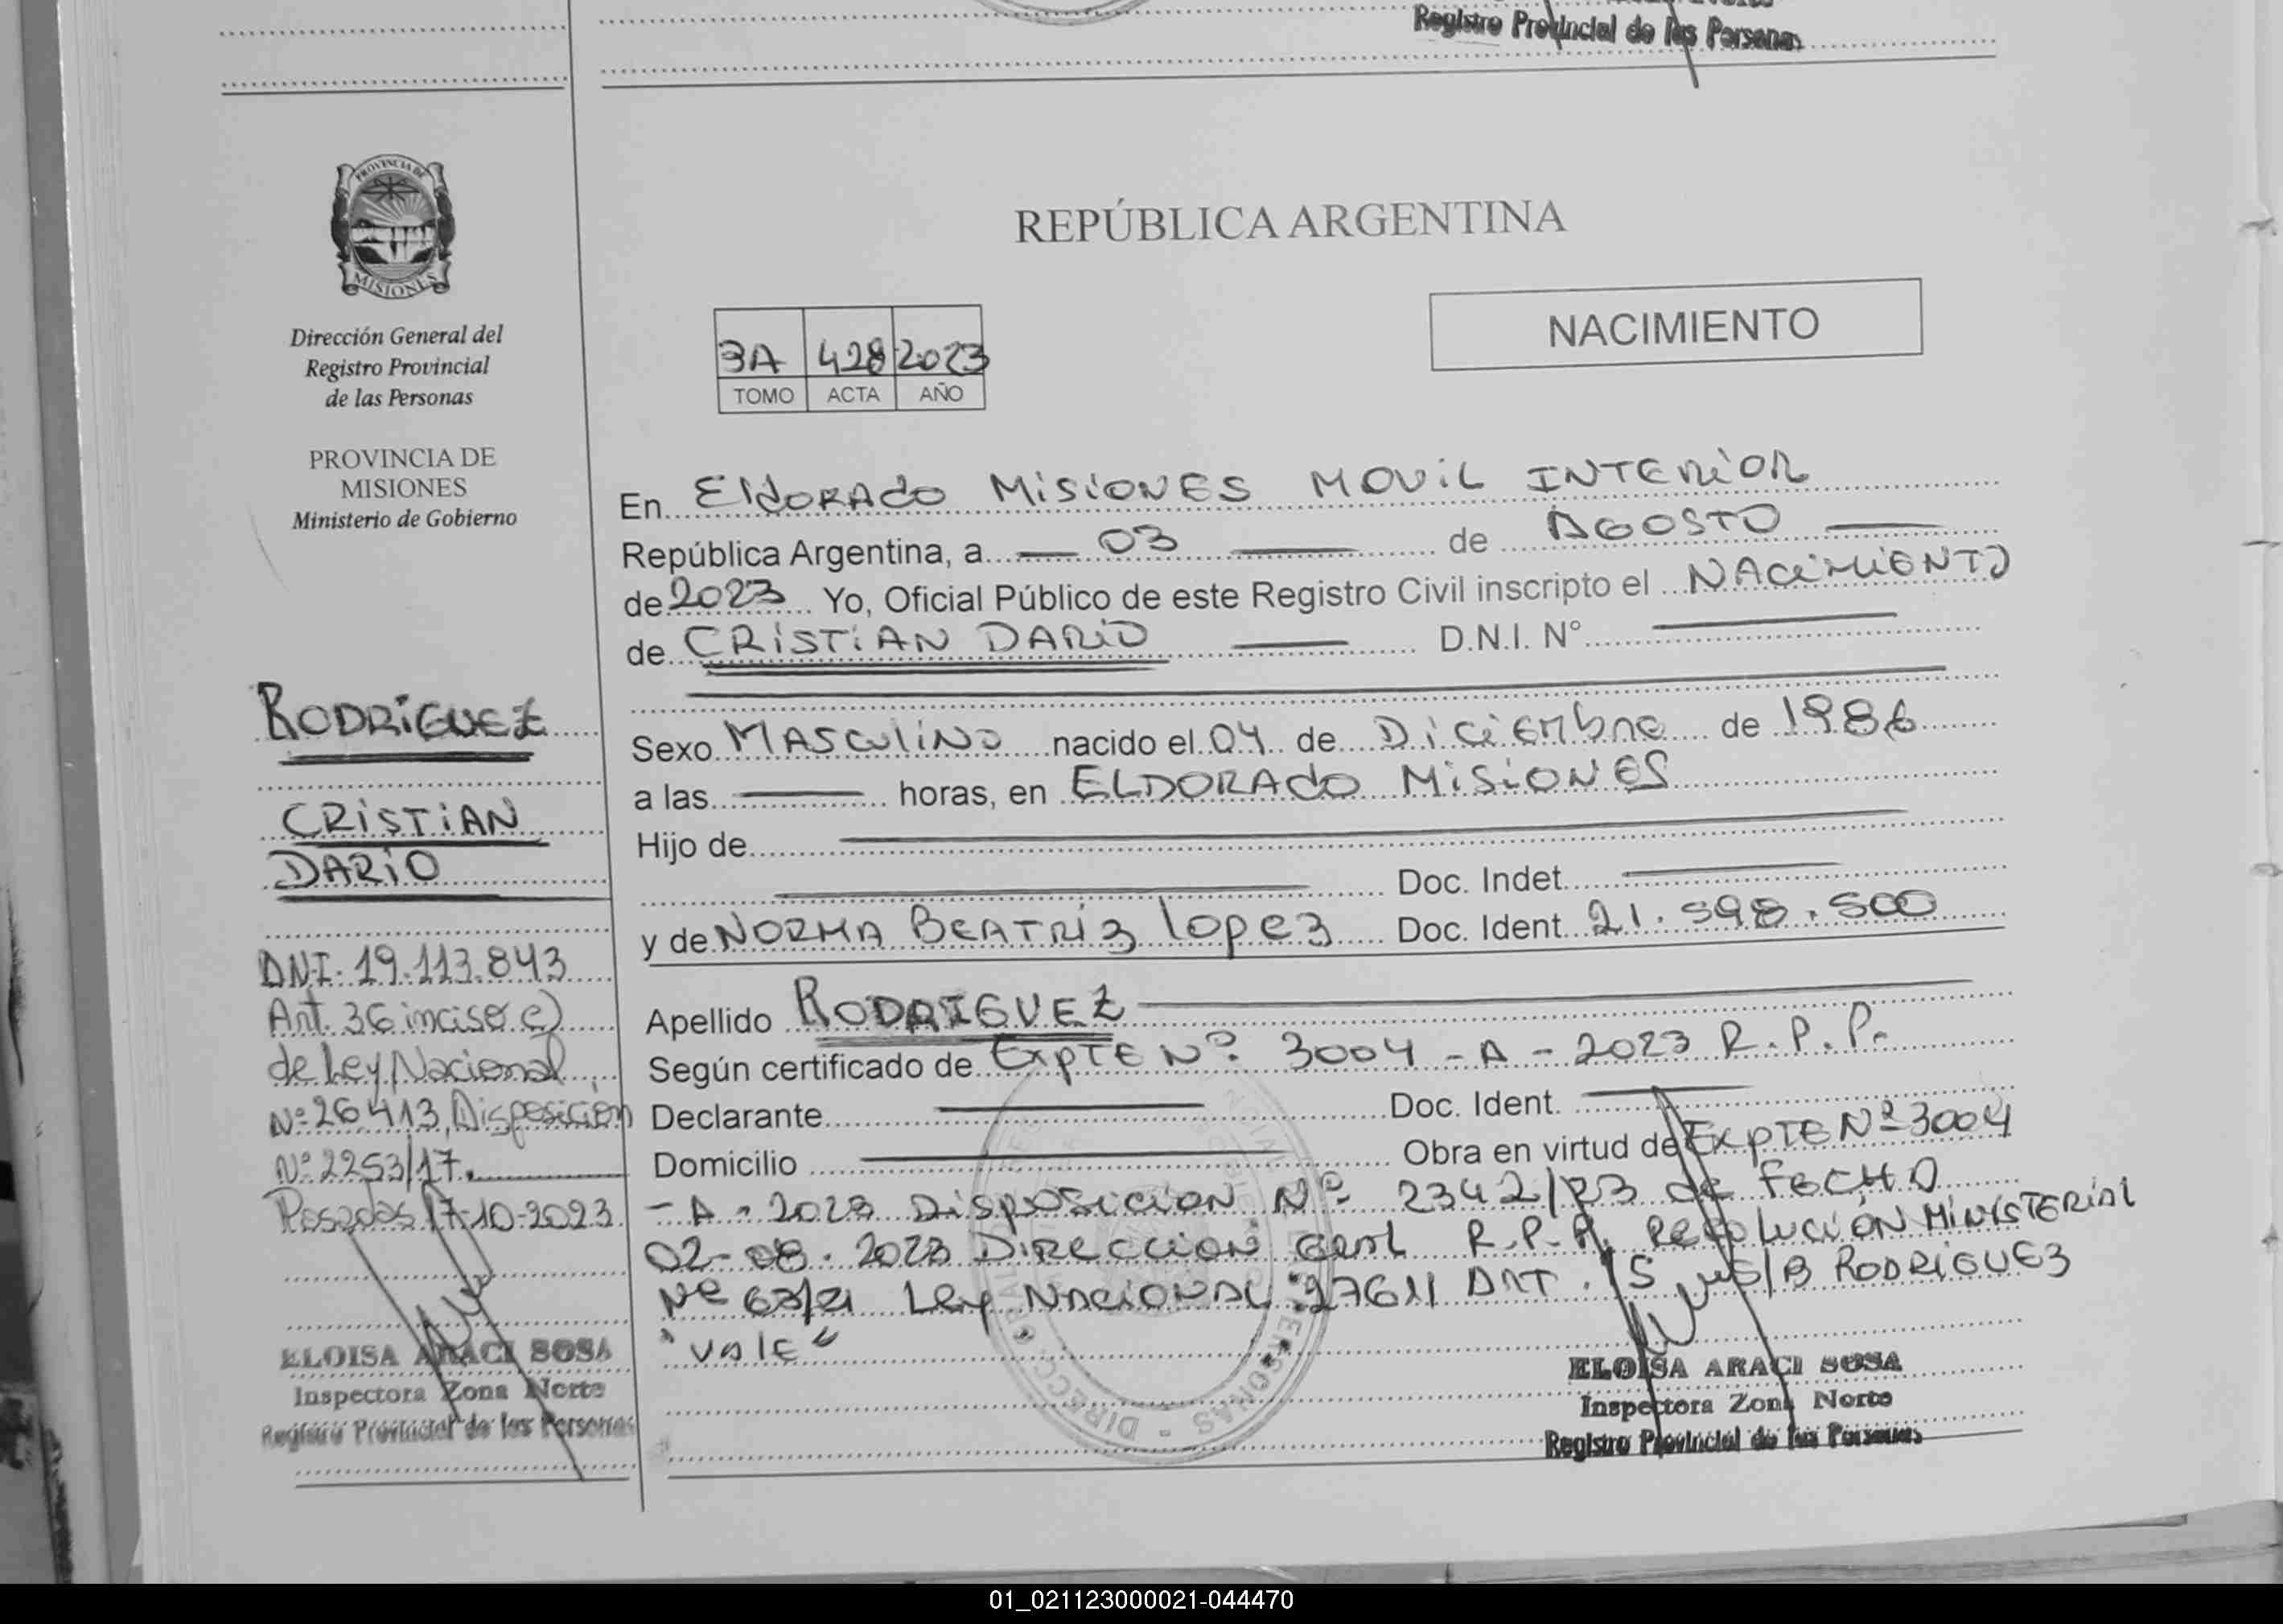 Registro Provincial de las Personas
PROVINCIA DE
MISIONES
Dirección General del
Registro Provincial
de las Personas
PROVINCIA DE
MISIONES
Ministerio de Gobierno
RODRIGUEZ
CRISTIAN
DARIO
DNI. 19.113.843
Art. 36 inciso c)
de Ley Nacional
Nº 26413, Disposición
Nº 2253/17.
Posadas 17-10-2023
ELOISA ARACI SOSA
Inspectora Zona Norte
Registro Provincial de las Personas
REPÚBLICA ARGENTINA
NACIMIENTO
3A 428 2023
TOMO ACTA AÑO
En ElDORADO MISIONES MOVIL INTERIOR
República Argentina, a 03 de AGOSTO
de 2023 Yo, Oficial Público de este Registro Civil inscripto el NACIMIENTO
de CRISTIAN DARIO D.N.I. N°
Sexo MASCULINO nacido el 04 de Diciembre de 1986
a las horas, en ELDORADO MISIONES
Hijo de
Doc. Indet.
y de NORMA BEATRIZ LOPEZ Doc. Ident. 21.598.500
Apellido RODRIGUEZ
Según certificado de EXPTE Nº 3004 - A - 2023 R.P.P.
Declarante Doc. Ident.
Domicilio Obra en virtud de EXPTE Nº 3004
- A - 2023 DISPOSICION Nº 2342/23 de FECHA
02-08-2023 DIRECCION GRAL R.P.P. RESOLUCIÓN MINISTERIAL
Nº 63/21 Ley NACIONAL 27611 ART. 15 S/B RODRIGUEZ
"VALE"
ELOISA ARACI SOSA
Inspectora Zona Norte
Registro Provincial de las Personas
01_021123000021-044470